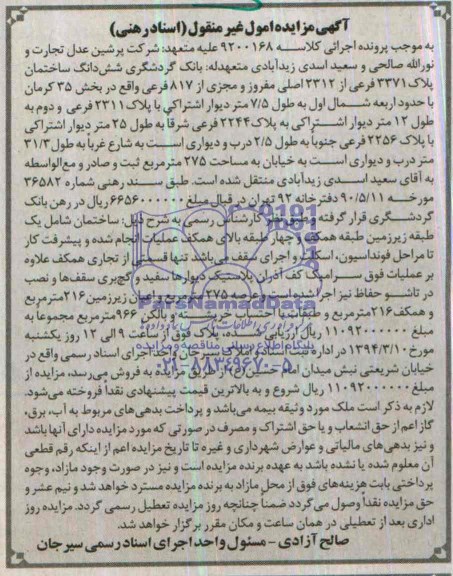 آگهی مزایده اموال غیر منقول (اسناد رهنی)
به موجب پرونده اجرائی کلاسه ۹۲۰۰۱۶۸ علیه متعهد: شرکت پرشین عدل تجارت و
نورالله صالحی و سعید اسدی زیدآبادی متعهدله: بانک گردشگری شش‌دانگ ساختمان
پلاک ۳۳۷۱ فرعی از ۲۳۱۲ اصلی مفروز و مجزی از ۸۱۷ فرعی واقع در بخش ۳۵ کرمان
با حدود اربعه شمال اول به طول ۷/۵ متر دیوار اشتراکی با پلاک ۲۳۱۱ فرعی و دوم به
طول ۱۲ متر دیوار اشتراکی به پلاک ۲۲۴۴ فرعی شرقاً به طول ۲۵ متر دیوار اشتراکی
با پلاک ۲۲۵۶ فرعی جنوباً به طول ۲/۵ درب و دیواری است به شارع غرباً به طول ۳۱/۳
متر درب و دیواری است به خیابان به مساحت ۲۷۵ مترمربع ثبت و صادر و مع‌الواسطه
به آقای سعید اسدی زیدآبادی منتقل شده است. طبق سند رهنی شماره ۳۶۵۸۲
مورخه ۹۰/۵/۱۱ دفترخانه ۹۲ تهران در قبال مبلغ ۶۶۵۶۰۰۰۰۰۰ ریال در رهن بانک
گردشگری قرار گرفته و طبق نظر کارشناس رسمی به شرح ذیل: ساختمان شامل یک
طبقه زیرزمین طبقه همکف و چهار طبقه بالای همکف عملیات انجام شده و پیشرفت کار
تا مراحل فونداسیون، اسکلت و اجرای سقف می‌باشد تنها قسمتی از تجاری همکف علاوه
بر عملیات فوق سرامیک کف آذران پلاستیک دیوارها سفید و گچ‌بری سقف‌ها و نصب
در تاشو حفاظ نیز اجرا شده است عرصه ۲۷۵ مترمربع و اعیان زیرزمین ۲۱۶ مترمربع
و همکف ۲۱۶ مترمربع و طبقات با احتساب خرپشته و بالکن ۹۶۶ مترمربع مجموعا به
مبلغ ۱۱۰۹۲۰۰۰۰۰۰ ریال ارزیابی شده، پلاک فوق از ساعت ۹ الی ۱۲ روز یکشنبه
مورخ ۱۳۹۴/۳/۱۰ در اداره ثبت اسناد و املاک سیرجان واحد اجرای اسناد رسمی واقع در
خیابان شریعتی نبش میدان از طریق مزایده به فروش می‌رسد، مزایده از
مبلغ ۱۱۰۹۲۰۰۰۰۰۰ ریال شروع و به بالاترین قیمت پیشنهادی نقداً فروخته می‌شود.
لازم به ذکر است ملک مورد وثیقه بیمه می‌باشد و پرداخت بدهی‌های مربوط به آب، برق،
گاز اعم از حق انشعاب و یا حق اشتراک و مصرف در صورتی که مورد مزایده دارای آنها باشد
و نیز بدهی‌های مالیاتی و عوارض شهرداری و غیره تا تاریخ مزایده اعم از اینکه رقم قطعی
آن معلوم شده یا نشده باشد به عهده برنده مزایده است و نیز در صورت وجود مازاد، وجوه
پرداختی بابت هزینه‌های فوق از محل مازاد به برنده مزایده مسترد خواهد شد و نیم عشر و
حق مزایده نقداً وصول می‌گردد ضمناً چنانچه روز مزایده تعطیل رسمی گردد. مزایده روز
اداری بعد از تعطیلی در همان ساعت و مکان مقرر برگزار خواهد شد.
صالح آزادی - مسئول واحد اجرای اسناد رسمی سیرجان
ParsNamadData
پایگاه اطلاع رسانی مناقصه و مزایده
۰۲۱-۸۸۳۴۹۶۷۰-۵